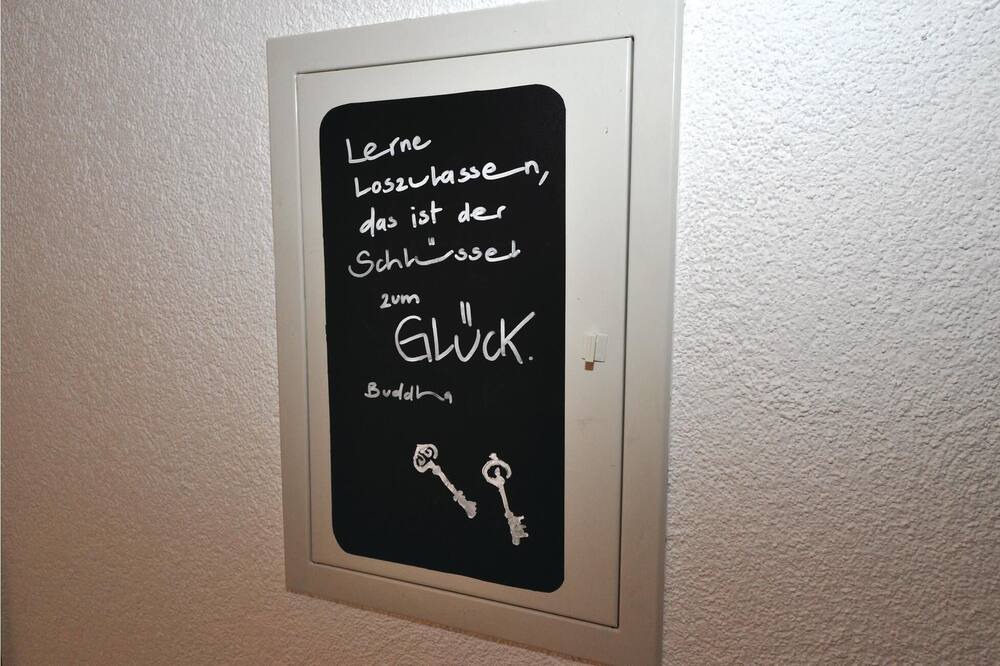 Lerne
Loszulassen,
das ist der
Schlüssel
zum
GLÜCK.
Buddha